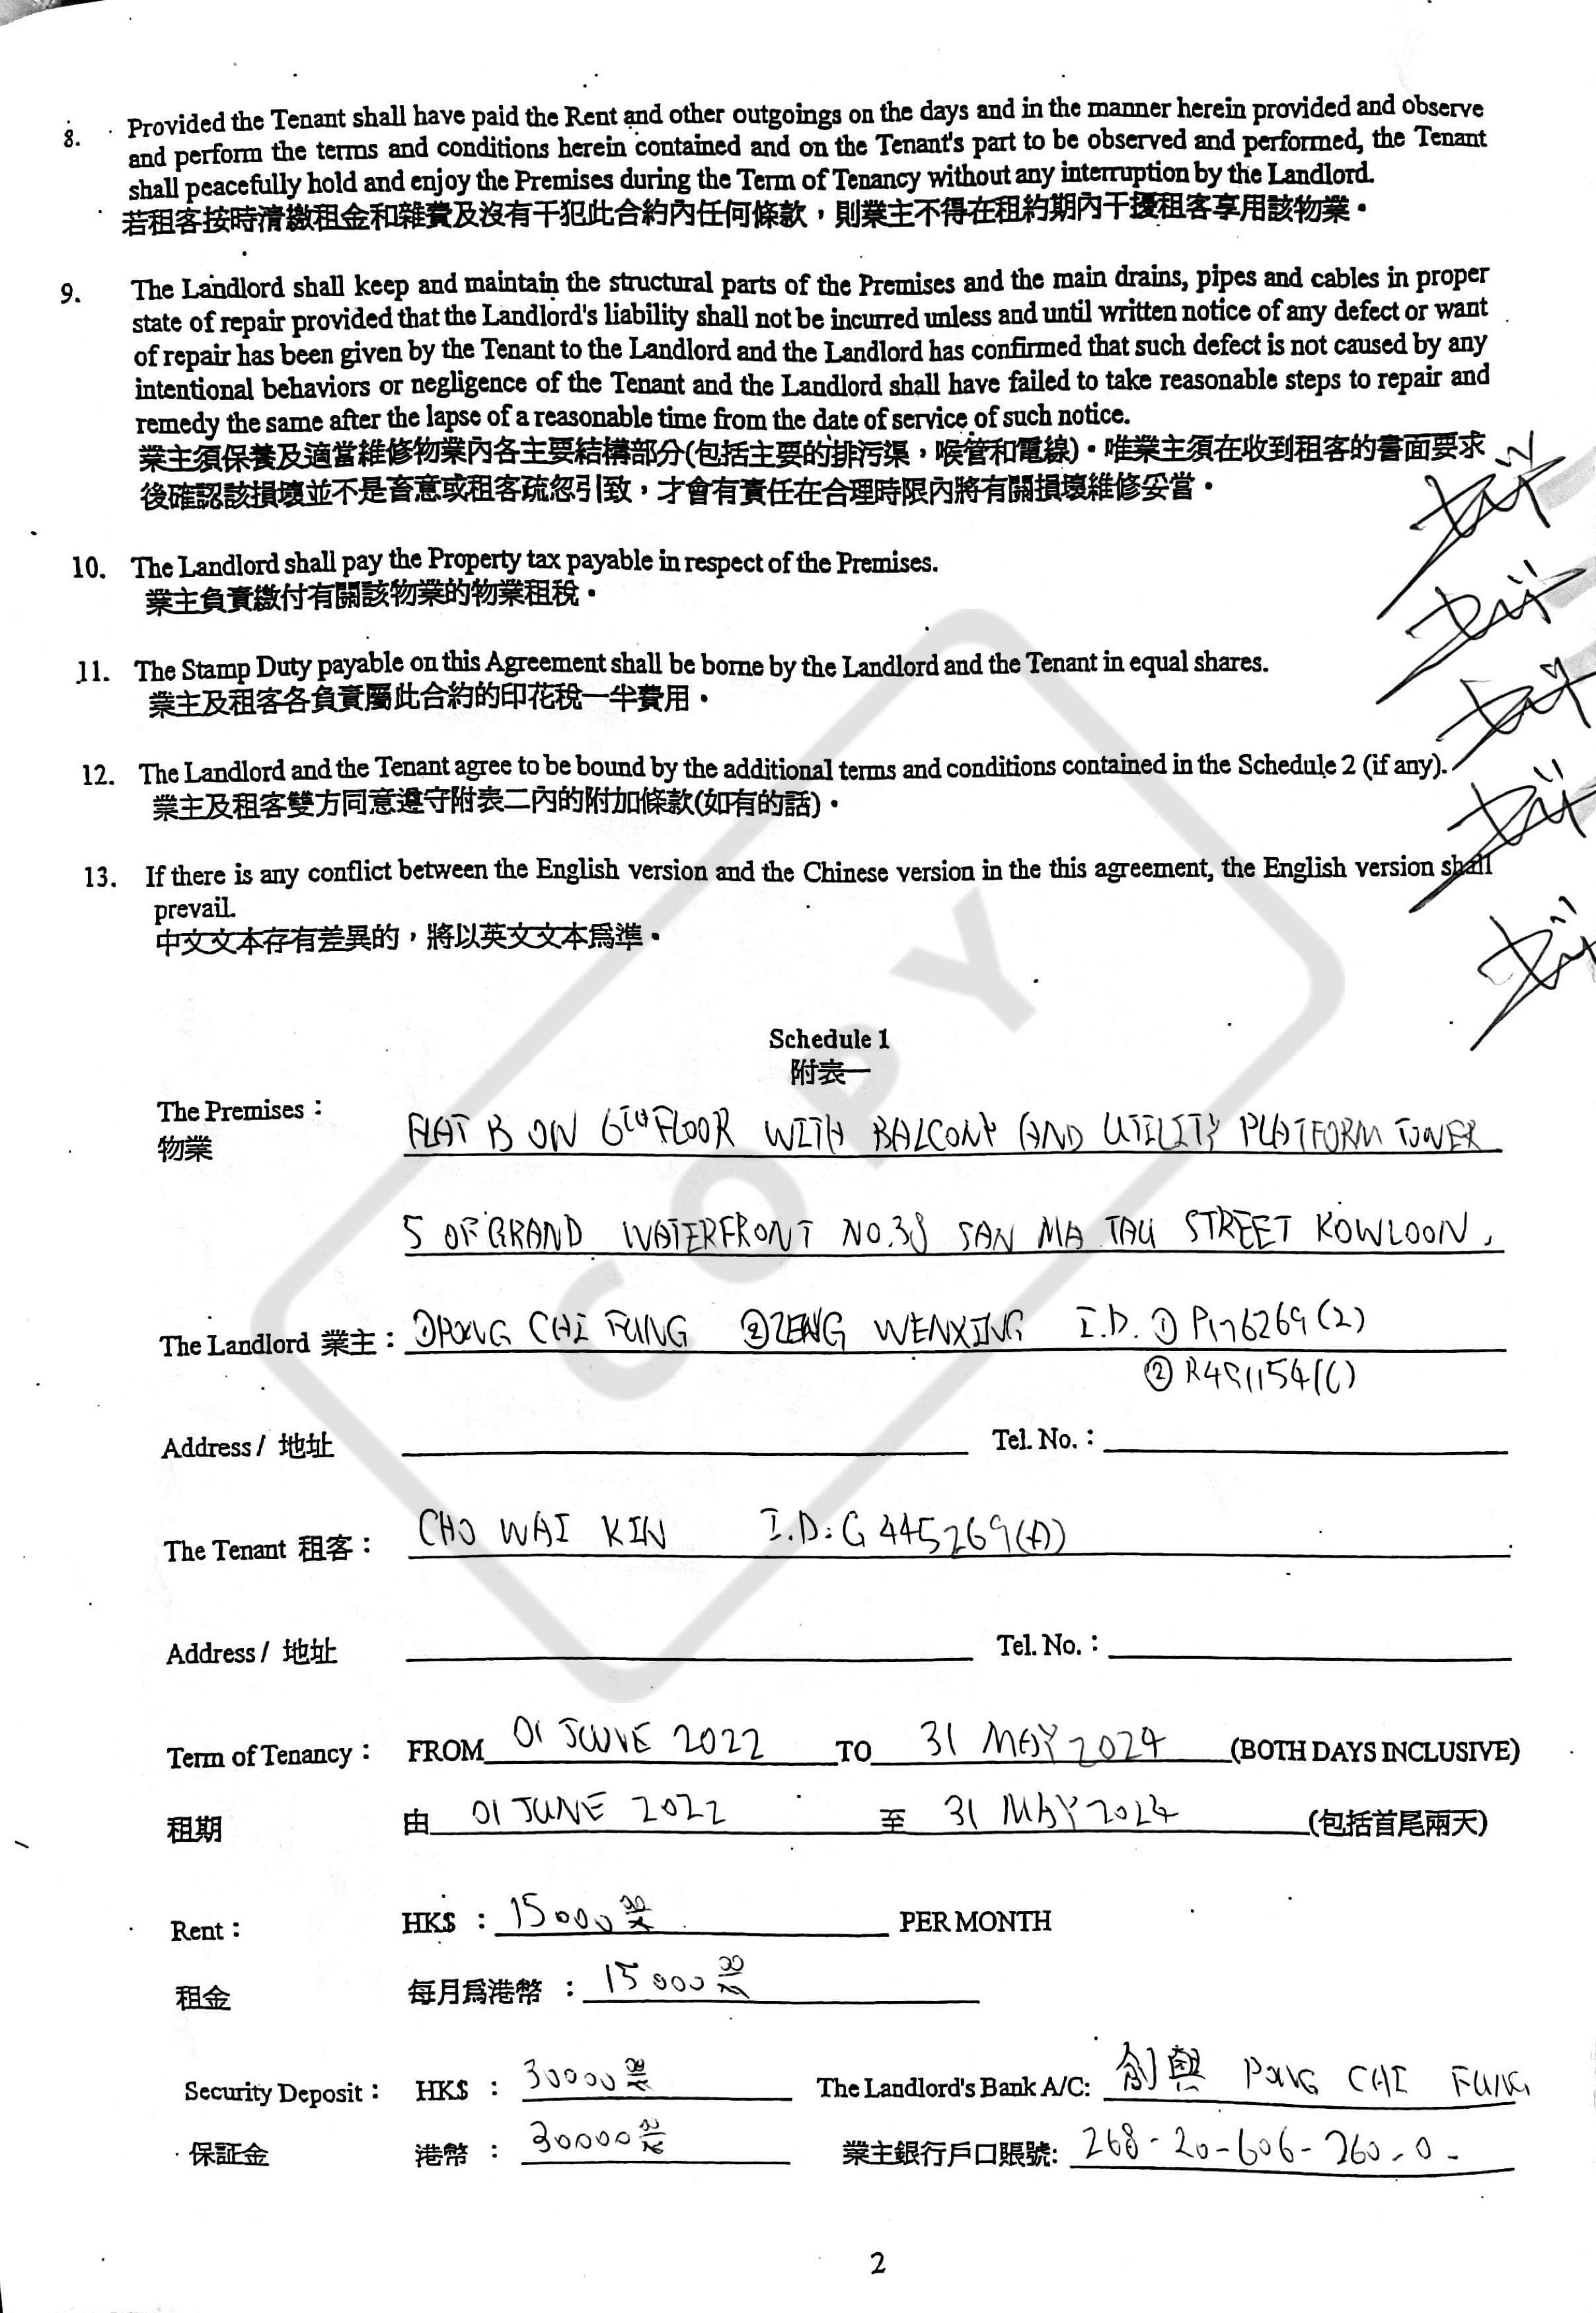 8. Provided the Tenant shall have paid the Rent and other outgoings on the days and in the manner herein provided and observe
and perform the terms and conditions herein contained and on the Tenant's part to be observed and performed, the Tenant
shall peacefully hold and enjoy the Premises during the Term of Tenancy without any interruption by the Landlord.
若租客按時清繳租金和雜費及沒有干犯此合約內任何條款，則業主不得在租約期內干擾租客享用該物業。
9. The Landlord shall keep and maintain the structural parts of the Premises and the main drains, pipes and cables in proper
state of repair provided that the Landlord's liability shall not be incurred unless and until written notice of any defect or want
of repair has been given by the Tenant to the Landlord and the Landlord has confirmed that such defect is not caused by any
intentional behaviors or negligence of the Tenant and the Landlord shall have failed to take reasonable steps to repair and
remedy the same after the lapse of a reasonable time from the date of service of such notice.
業主須保養及適當維修物業內各主要結構部分(包括主要的排污渠，喉管和電線)。唯業主須在收到租客的書面要求
後確認該損壞並不是畜意或租客疏忽引致，才會有責任在合理時限內將有關損壞維修妥當。
10. The Landlord shall pay the Property tax payable in respect of the Premises.
業主負責繳付有關該物業的物業租稅。
11. The Stamp Duty payable on this Agreement shall be borne by the Landlord and the Tenant in equal shares.
業主及租客各負責屬此合約的印花稅一半費用。
12. The Landlord and the Tenant agree to be bound by the additional terms and conditions contained in the Schedule 2 (if any).
業主及租客雙方同意遵守附表二內的附加條款(如有的話)。
13. If there is any conflict between the English version and the Chinese version in the this agreement, the English version shall
prevail.
中文文本存有差異的，將以英文文本為準。
COPY
Schedule 1
附表一
The Premises： FLAT B ON 6TH FLOOR WITH BALCONY AND UTILITY PLATFORM TOWER
物業
5 OF GRAND WATERFRONT NO.38 SAN MA TAU STREET KOWLOON.
The Landlord 業主： ① PONG CHI FUNG ② ZENG WENXING I.D. ① P176269(2)
② R491154(C)
Address / 地址 Tel. No.：
The Tenant 租客： CHO WAI KIN I.D: G445269(A)
Address / 地址 Tel. No.：
Term of Tenancy： FROM 01 JUNE 2022 TO 31 MAY 2024 (BOTH DAYS INCLUSIVE)
租期 由 01 JUNE 2022 至 31 MAY 2024 (包括首尾兩天)
Rent： HK$ ： 15000 PER MONTH
租金 每月為港幣 ： 15000
Security Deposit： HK$ ： 30000 The Landlord's Bank A/C: 創興 PONG CHI FUNG
保証金 港幣 ： 30000 業主銀行戶口賬號: 268-20-606-260-0-
2